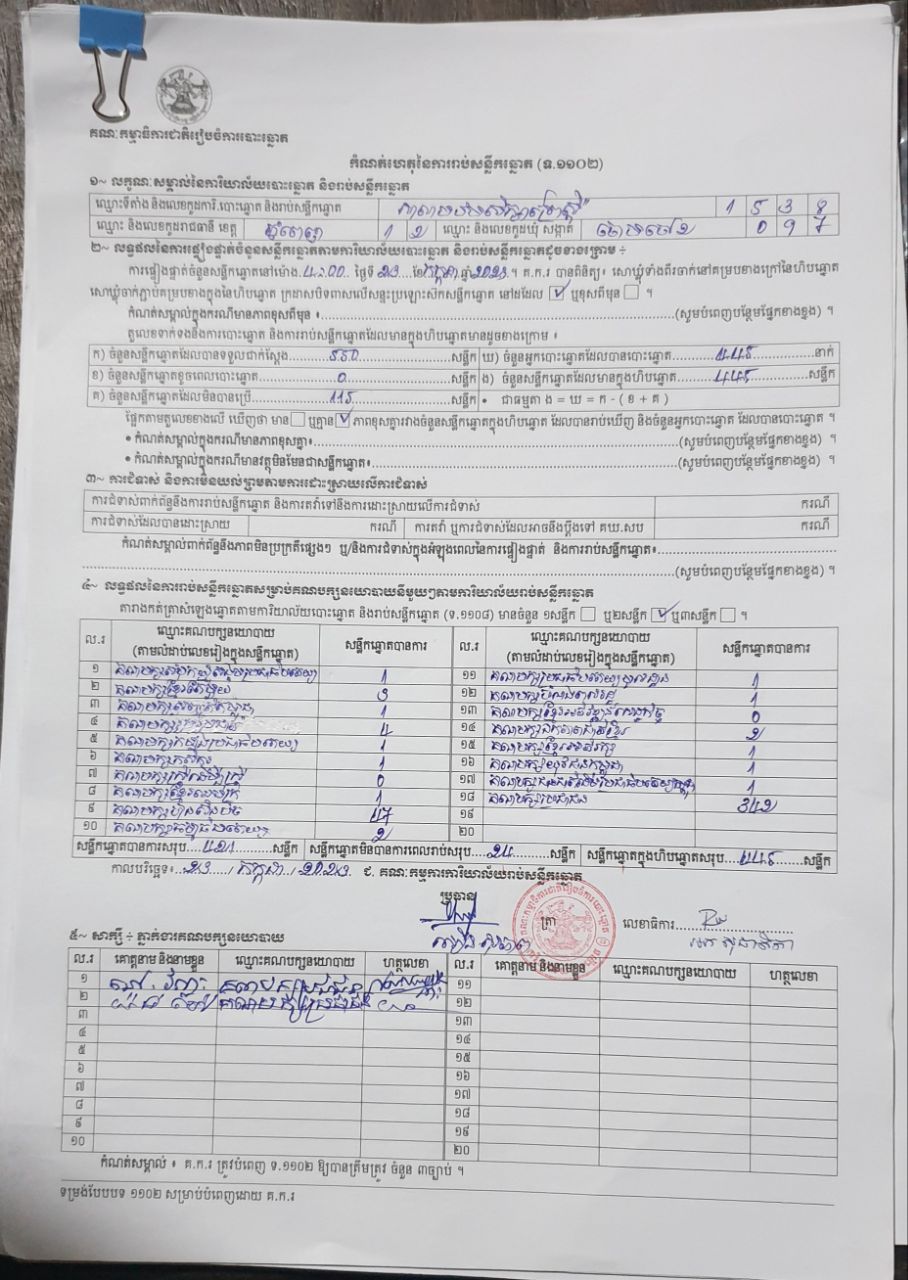 គណៈកម្មាធិការជាតិរៀបចំការបោះឆ្នោត
កំណត់ហេតុនៃការរាប់សន្លឹកឆ្នោត (ទ.១១០២)
១~ លក្ខណៈសម្គាល់នៃការិយាល័យបោះឆ្នោត និងរាប់សន្លឹកឆ្នោត
ឈ្មោះទីតាំង និងលេខកូដការិ.បោះឆ្នោត និងរាប់សន្លឹកឆ្នោត 1 5 3 8
ឈ្មោះ និងលេខកូដរាជធានី ខេត្ត ភ្នំពេញ 1 2 ឈ្មោះ និងលេខកូដឃុំ សង្កាត់ ចោមចៅ២ 0 9 7
២~ លទ្ធផលនៃការផ្ទៀងផ្ទាត់ចំនួនសន្លឹកឆ្នោតតាមការិយាល័យបោះឆ្នោត និងរាប់សន្លឹកឆ្នោតដូចខាងក្រោម ÷
ការផ្ទៀងផ្ទាត់ចំនួនសន្លឹកឆ្នោតនៅម៉ោង 4:00 ថ្ងៃទី 23 ខែ កក្កដា ឆ្នាំ 2023 ។ គ.ក.រ បានពិនិត្យ៖ សោឃ្លុំទាំងពីរចាក់នៅគម្របខាងក្រៅនៃហិបឆ្នោត
សោឃ្លុំចាក់ភ្ជាប់គម្របខាងក្នុងនៃហិបឆ្នោត ក្រដាសបិទពាសលើសន្ទះប្រឡោះស៊កសន្លឹកឆ្នោត នៅដដែល ☑ ឬខុសពីមុន ☐ ។
កំណត់សម្គាល់ក្នុងករណីមានភាពខុសពីមុន ៖ (សូមបំពេញបន្ថែមផ្នែកខាងខ្នង) ។
តួលេខទាក់ទងនឹងការបោះឆ្នោត និងការរាប់សន្លឹកឆ្នោតដែលមានក្នុងហិបឆ្នោតមានដូចខាងក្រោម ៖
ក) ចំនួនសន្លឹកឆ្នោតដែលបានទទួលជាក់ស្តែង 550 សន្លឹក ឃ) ចំនួនអ្នកបោះឆ្នោតដែលបានបោះឆ្នោត 445 នាក់
ខ) ចំនួនសន្លឹកឆ្នោតខូចពេលបោះឆ្នោត 0 សន្លឹក ង) ចំនួនសន្លឹកឆ្នោតដែលមានក្នុងហិបឆ្នោត 445 សន្លឹក
គ) ចំនួនសន្លឹកឆ្នោតដែលមិនបានប្រើ 115 សន្លឹក • ជាធម្មតា ង = ឃ = ក - ( ខ + គ )
ផ្អែកតាមតួលេខខាងលើ ឃើញថា មាន ☐ ឬគ្មាន ☑ ភាពខុសគ្នារវាងចំនួនសន្លឹកឆ្នោតក្នុងហិបឆ្នោត ដែលបានរាប់ឃើញ និងចំនួនអ្នកបោះឆ្នោត ដែលបានបោះឆ្នោត ។
• កំណត់សម្គាល់ក្នុងករណីមានភាពខុសគ្នា៖ (សូមបំពេញបន្ថែមផ្នែកខាងខ្នង) ។
• កំណត់សម្គាល់ក្នុងករណីមានវត្ថុមិនមែនជាសន្លឹកឆ្នោត៖ (សូមបំពេញបន្ថែមផ្នែកខាងខ្នង) ។
៣~ ការជំទាស់ និងការមិនយល់ព្រមតាមការដោះស្រាយលើការជំទាស់
ការជំទាស់ពាក់ព័ន្ធនឹងការរាប់សន្លឹកឆ្នោត និងការតវ៉ាទៅនឹងការដោះស្រាយលើការជំទាស់ ករណី
ការជំទាស់ដែលបានដោះស្រាយ ករណី ការតវ៉ា ឬការជំទាស់ដែលអាចនឹងប្តឹងទៅ គឃ.សប ករណី
កំណត់សម្គាល់ពាក់ព័ន្ធនឹងភាពមិនប្រក្រតីផ្សេងៗ ឬ/និងការជំទាស់ក្នុងអំឡុងពេលនៃការផ្ទៀងផ្ទាត់ និងការរាប់សន្លឹកឆ្នោត៖
(សូមបំពេញបន្ថែមផ្នែកខាងខ្នង) ។
៤~ លទ្ធផលនៃការរាប់សន្លឹកឆ្នោតសម្រាប់គណបក្សនយោបាយនីមួយៗតាមការិយាល័យរាប់សន្លឹកឆ្នោត
តារាងកត់ត្រាសំឡេងឆ្នោតតាមការិយាល័យបោះឆ្នោត និងរាប់សន្លឹកឆ្នោត (ទ.១១០៨) មានចំនួន ១សន្លឹក ☐ ឬ២សន្លឹក ☑ ឬ៣សន្លឹក ☐ ។
ល.រ ឈ្មោះគណបក្សនយោបាយ (តាមលំដាប់លេខរៀងក្នុងសន្លឹកឆ្នោត) សន្លឹកឆ្នោតបានការ ល.រ ឈ្មោះគណបក្សនយោបាយ (តាមលំដាប់លេខរៀងក្នុងសន្លឹកឆ្នោត) សន្លឹកឆ្នោតបានការ
១ 1 ១១ 1
២ គណបក្សខ្មែរតែមួយ 3 ១២ 1
៣ 1 ១៣ 0
៤ 4 ១៤ 2
៥ 1 ១៥ 1
៦ គណបក្សកសិករ 1 ១៦ គណបក្សយុវជនកម្ពុជា 1
៧ គណបក្សស្ត្រីដើម្បីស្ត្រី 0 ១៧ 1
៨ 1 ១៨ គណបក្សប្រជាជន 342
៩ គណបក្សហ្វ៊ុនស៊ិនប៉ិច 47 ១៩
១០ គណបក្សធម្មាធិបតេយ្យ 2 ២០
សន្លឹកឆ្នោតបានការសរុប 421 សន្លឹក សន្លឹកឆ្នោតមិនបានការពេលរាប់សរុប 24 សន្លឹក សន្លឹកឆ្នោតក្នុងហិបឆ្នោតសរុប 445 សន្លឹក
កាលបរិច្ឆេទ៖ 23 / កក្កដា / 2023 ជ. គណៈកម្មការការិយាល័យរាប់សន្លឹកឆ្នោត
ប្រធាន ត្រា លេខាធិការ
៥~ សាក្សី ÷ ភ្នាក់ងារគណបក្សនយោបាយ
ល.រ គោត្តនាម និងនាមខ្លួន ឈ្មោះគណបក្សនយោបាយ ហត្ថលេខា ល.រ គោត្តនាម និងនាមខ្លួន ឈ្មោះគណបក្សនយោបាយ ហត្ថលេខា
១ ១១
២ ១២
៣ ១៣
៤ ១៤
៥ ១៥
៦ ១៦
៧ ១៧
៨ ១៨
៩ ១៩
១០ ២០
កំណត់សម្គាល់ ៖ គ.ក.រ ត្រូវបំពេញ ទ.១១០២ ឱ្យបានត្រឹមត្រូវ ចំនួន ៣ច្បាប់ ។
ទម្រង់បែបបទ ១១០២ សម្រាប់បំពេញដោយ គ.ក.រ